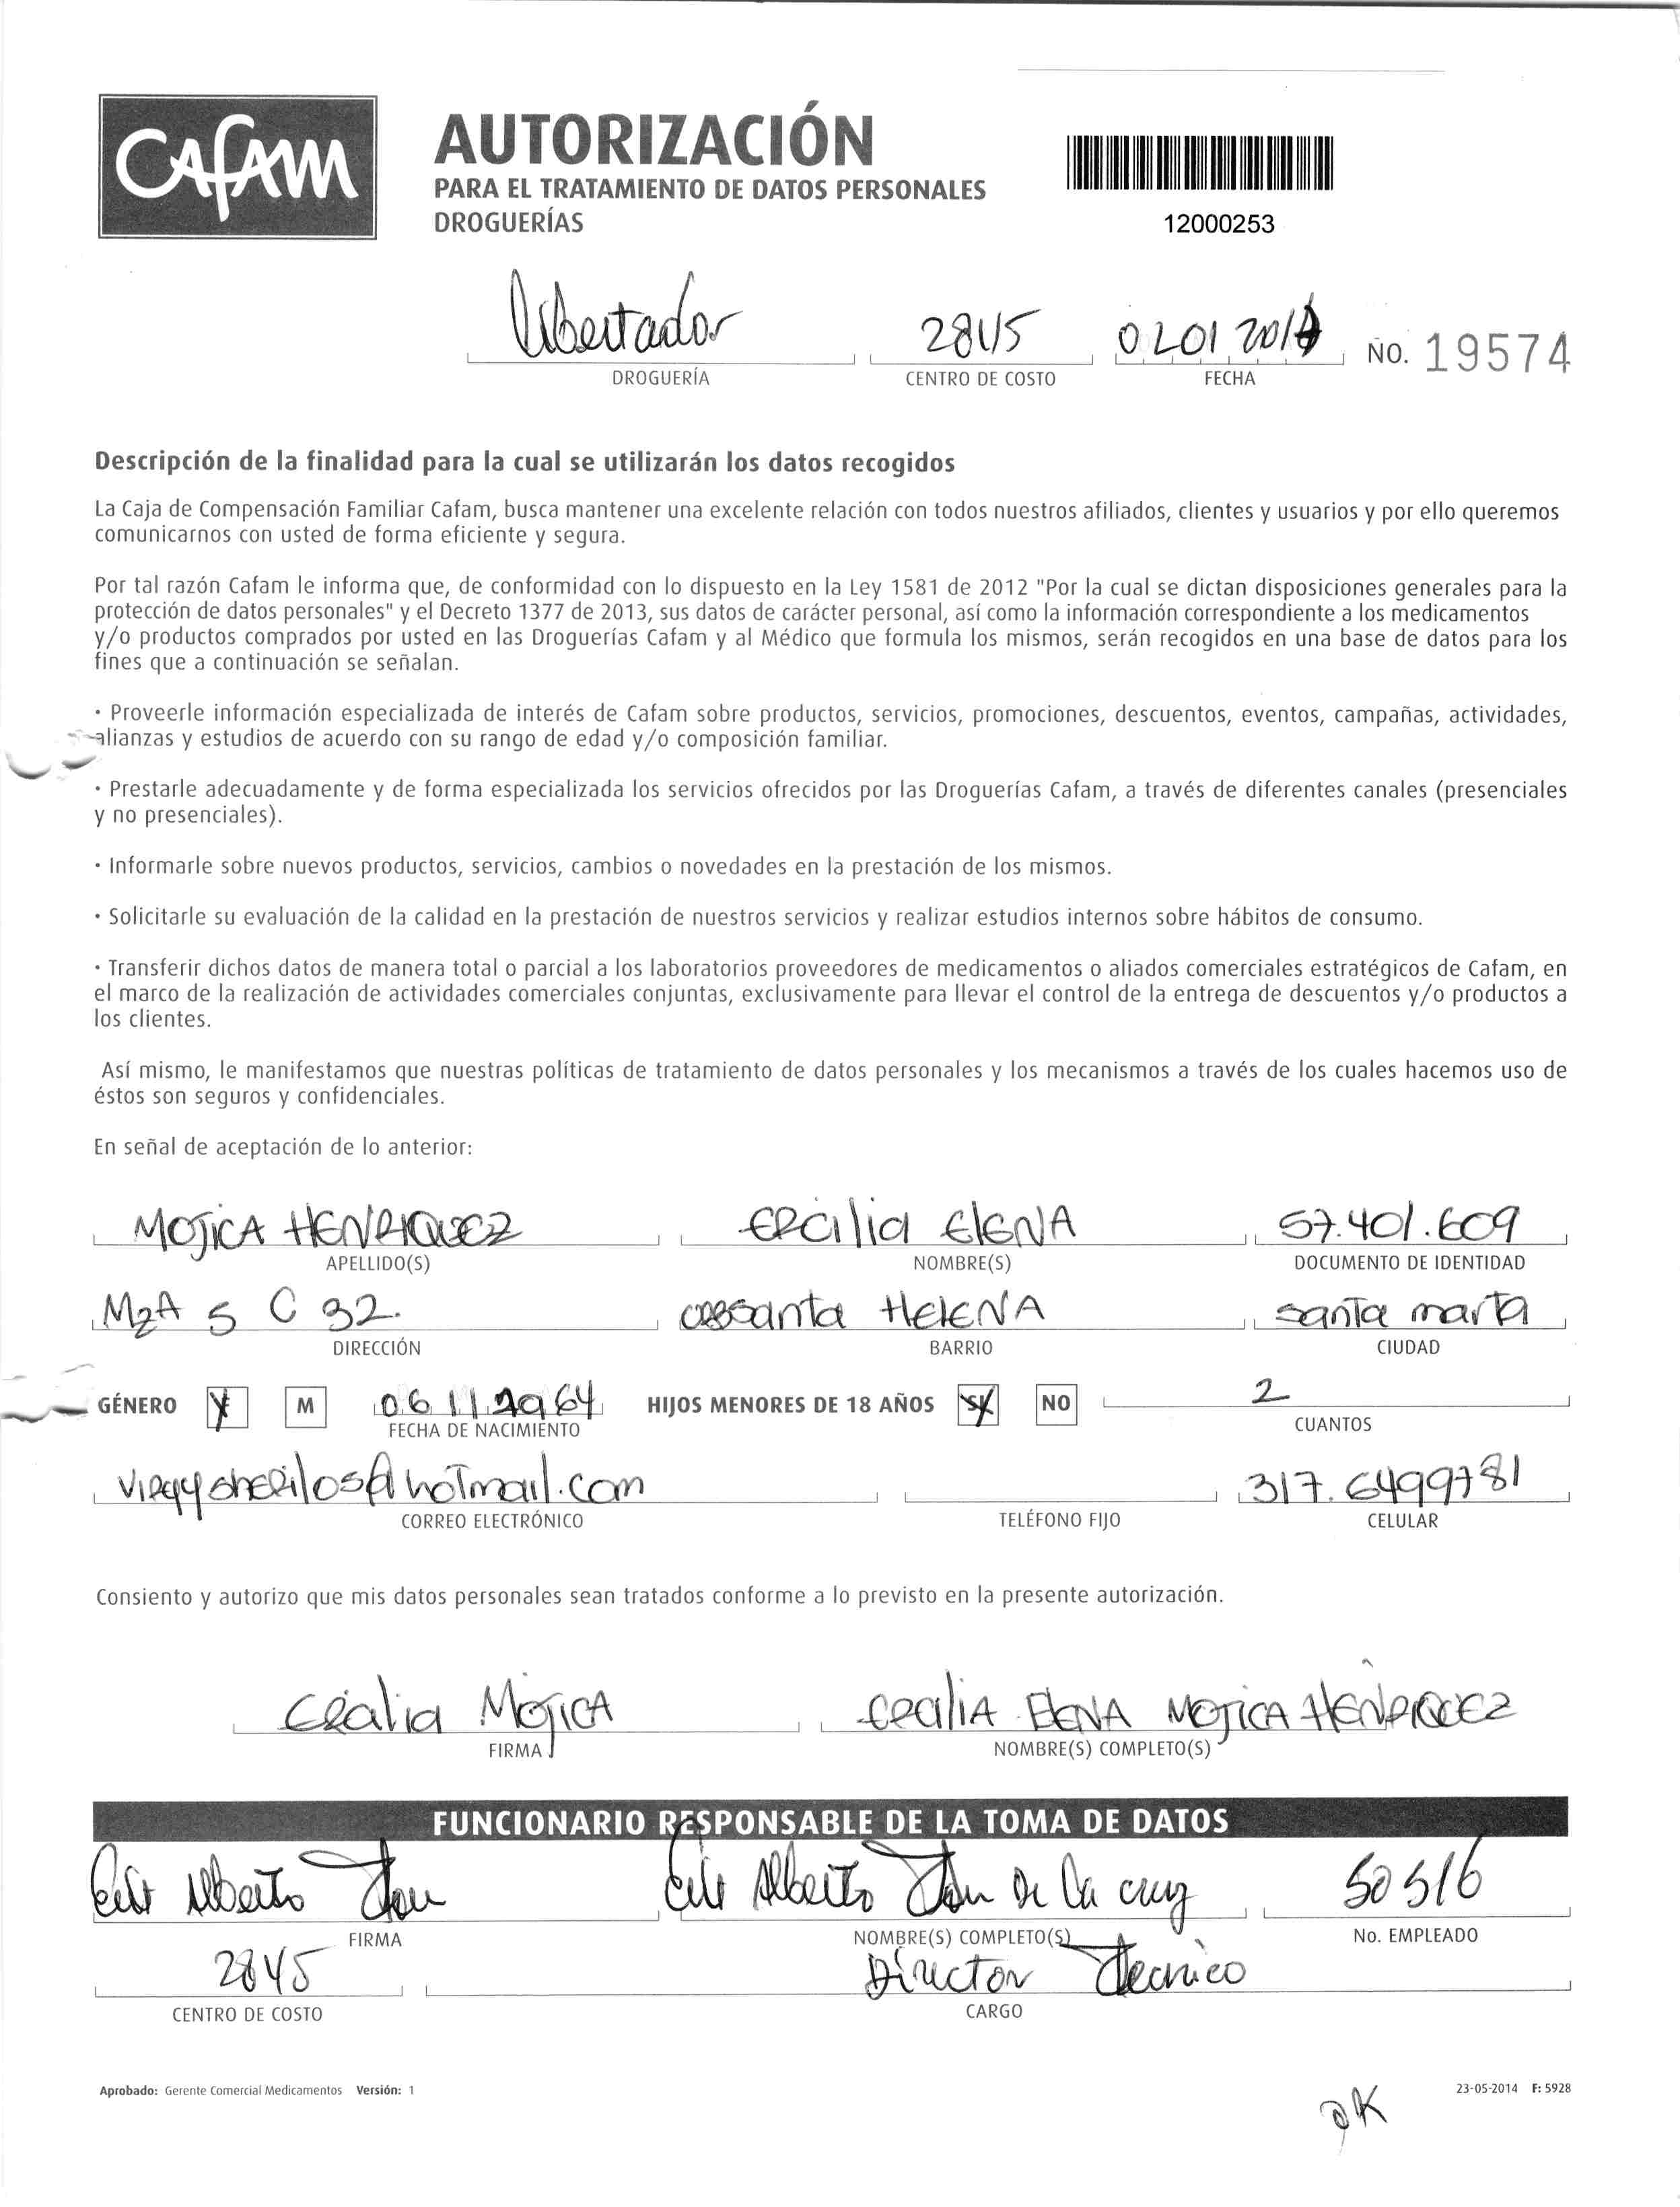 CAFAM
AUTORIZACIÓN
PARA EL TRATAMIENTO DE DATOS PERSONALES
DROGUERÍAS
12000253
Libertador 2845 02 01 201
DROGUERÍA CENTRO DE COSTO FECHA NO. 19574
Descripción de la finalidad para la cual se utilizarán los datos recogidos
La Caja de Compensación Familiar Cafam, busca mantener una excelente relación con todos nuestros afiliados, clientes y usuarios y por ello queremos
comunicarnos con usted de forma eficiente y segura.
Por tal razón Cafam le informa que, de conformidad con lo dispuesto en la Ley 1581 de 2012 "Por la cual se dictan disposiciones generales para la
protección de datos personales" y el Decreto 1377 de 2013, sus datos de carácter personal, así como la información correspondiente a los medicamentos
y/o productos comprados por usted en las Droguerías Cafam y al Médico que formula los mismos, serán recogidos en una base de datos para los
fines que a continuación se señalan.
· Proveerle información especializada de interés de Cafam sobre productos, servicios, promociones, descuentos, eventos, campañas, actividades,
alianzas y estudios de acuerdo con su rango de edad y/o composición familiar.
· Prestarle adecuadamente y de forma especializada los servicios ofrecidos por las Droguerías Cafam, a través de diferentes canales (presenciales
y no presenciales).
· Informarle sobre nuevos productos, servicios, cambios o novedades en la prestación de los mismos.
· Solicitarle su evaluación de la calidad en la prestación de nuestros servicios y realizar estudios internos sobre hábitos de consumo.
· Transferir dichos datos de manera total o parcial a los laboratorios proveedores de medicamentos o aliados comerciales estratégicos de Cafam, en
el marco de la realización de actividades comerciales conjuntas, exclusivamente para llevar el control de la entrega de descuentos y/o productos a
los clientes.
Así mismo, le manifestamos que nuestras políticas de tratamiento de datos personales y los mecanismos a través de los cuales hacemos uso de
éstos son seguros y confidenciales.
En señal de aceptación de lo anterior:
MOJICA HENRIQUEZ CECILIA ELENA 57.401.609
APELLIDO(S) NOMBRE(S) DOCUMENTO DE IDENTIDAD
MzA 5 C 32. santa HELENA santa marta
DIRECCIÓN BARRIO CIUDAD
GÉNERO M 06 11 1964 HIJOS MENORES DE 18 AÑOS SI NO 2
FECHA DE NACIMIENTO CUANTOS
@hotmail.com 317.6499781
CORREO ELECTRÓNICO TELÉFONO FIJO CELULAR
Consiento y autorizo que mis datos personales sean tratados conforme a lo previsto en la presente autorización.
Cecilia MOJICA CECILIA ELENA MOJICA HENRIQUEZ
FIRMA NOMBRE(S) COMPLETO(S)
FUNCIONARIO RESPONSABLE DE LA TOMA DE DATOS
Alberto Alberto De la cruz 50516
FIRMA NOMBRE(S) COMPLETO(S) No. EMPLEADO
2845 Director Tecnico
CENTRO DE COSTO CARGO
Aprobado: Gerente Comercial Medicamentos Versión: 1 23-05-2014 F: 5928
OK